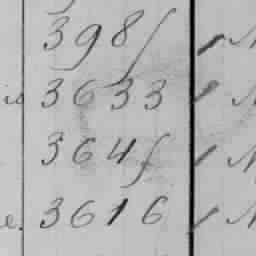 398f / N
is 3633 / N
364f / N
e. 3616 / N